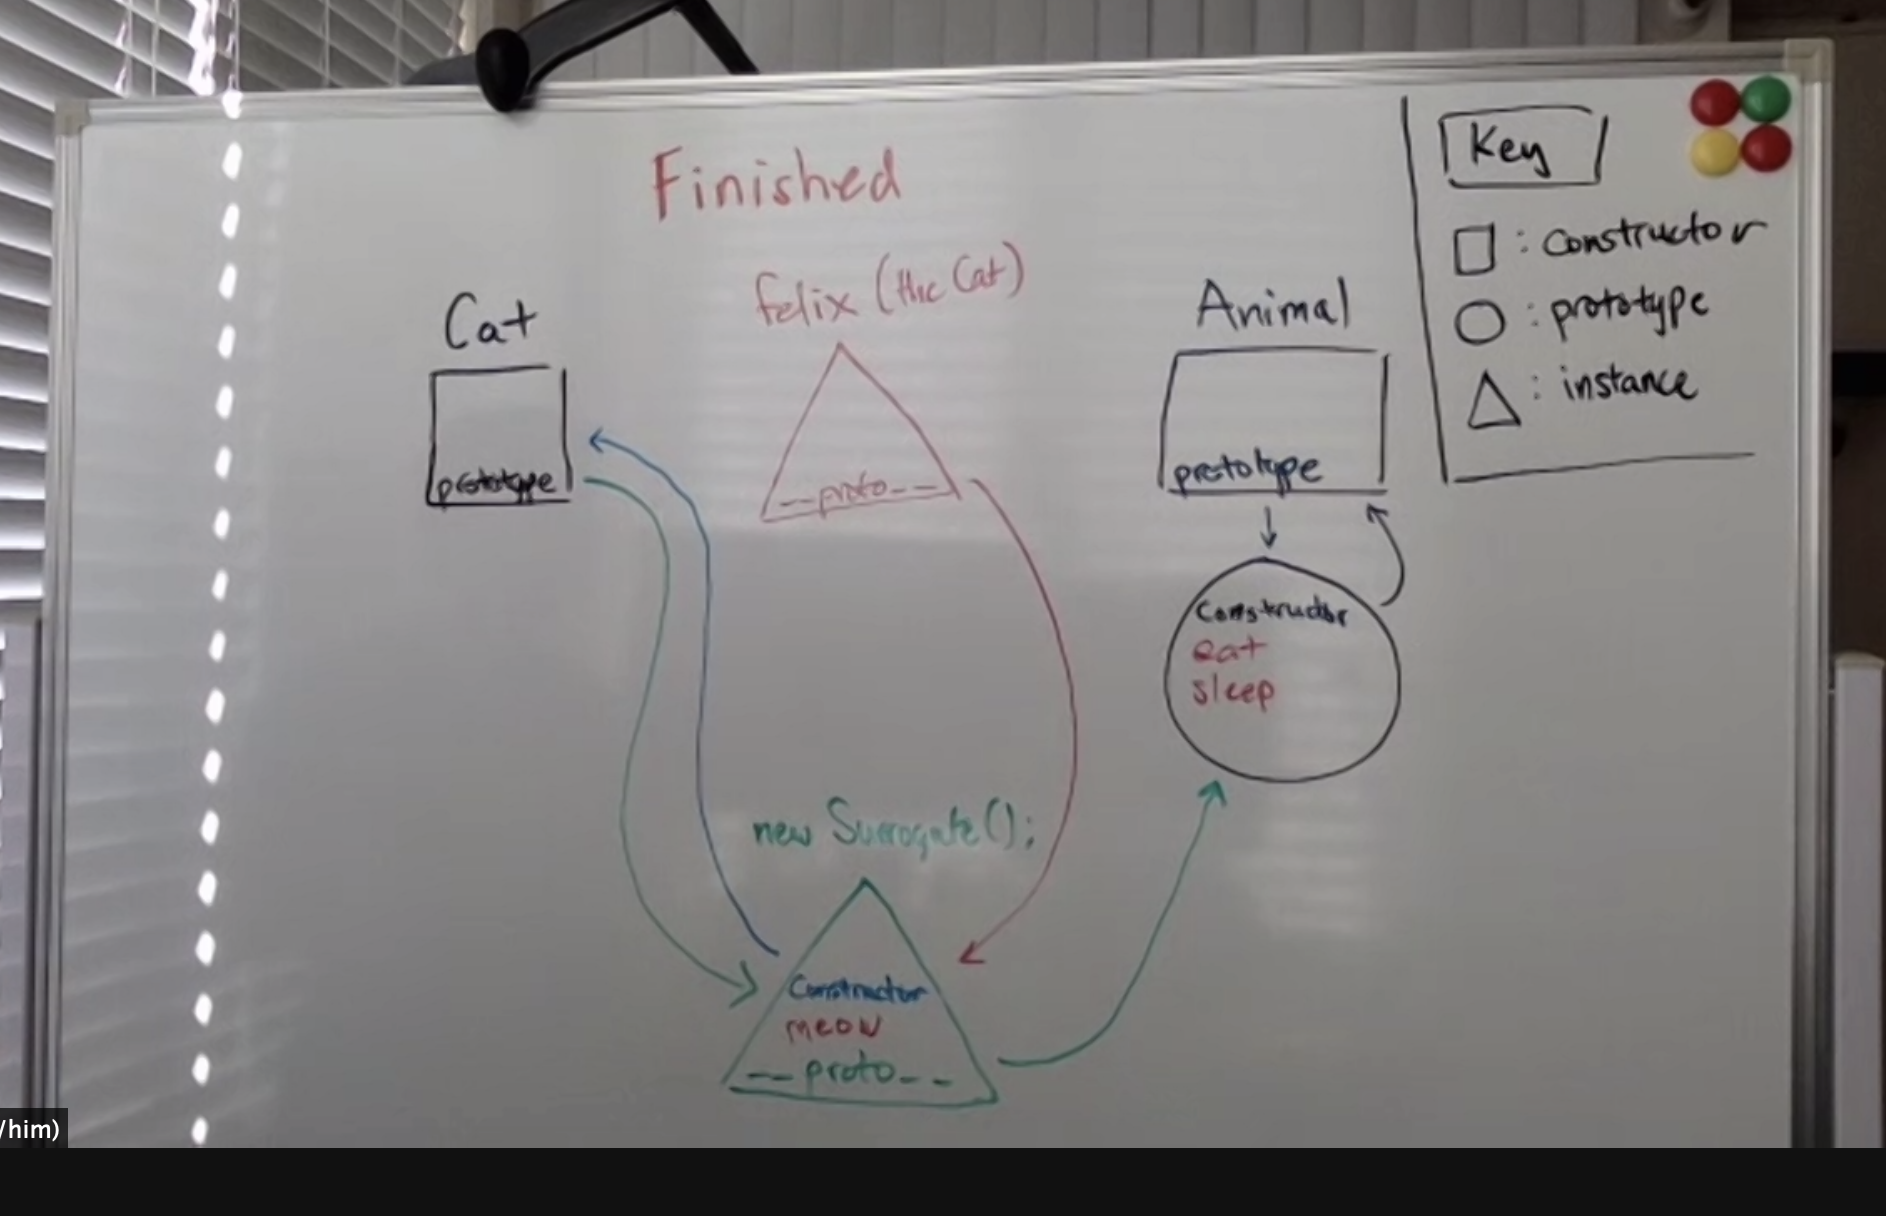 Finished
Key
: constructor
: prototype
: instance
felix (the Cat)
Cat
Animal
prototype
__proto__
prototype
constructor
eat
sleep
new Surrogate();
Constructor
meow
__proto__
/him)